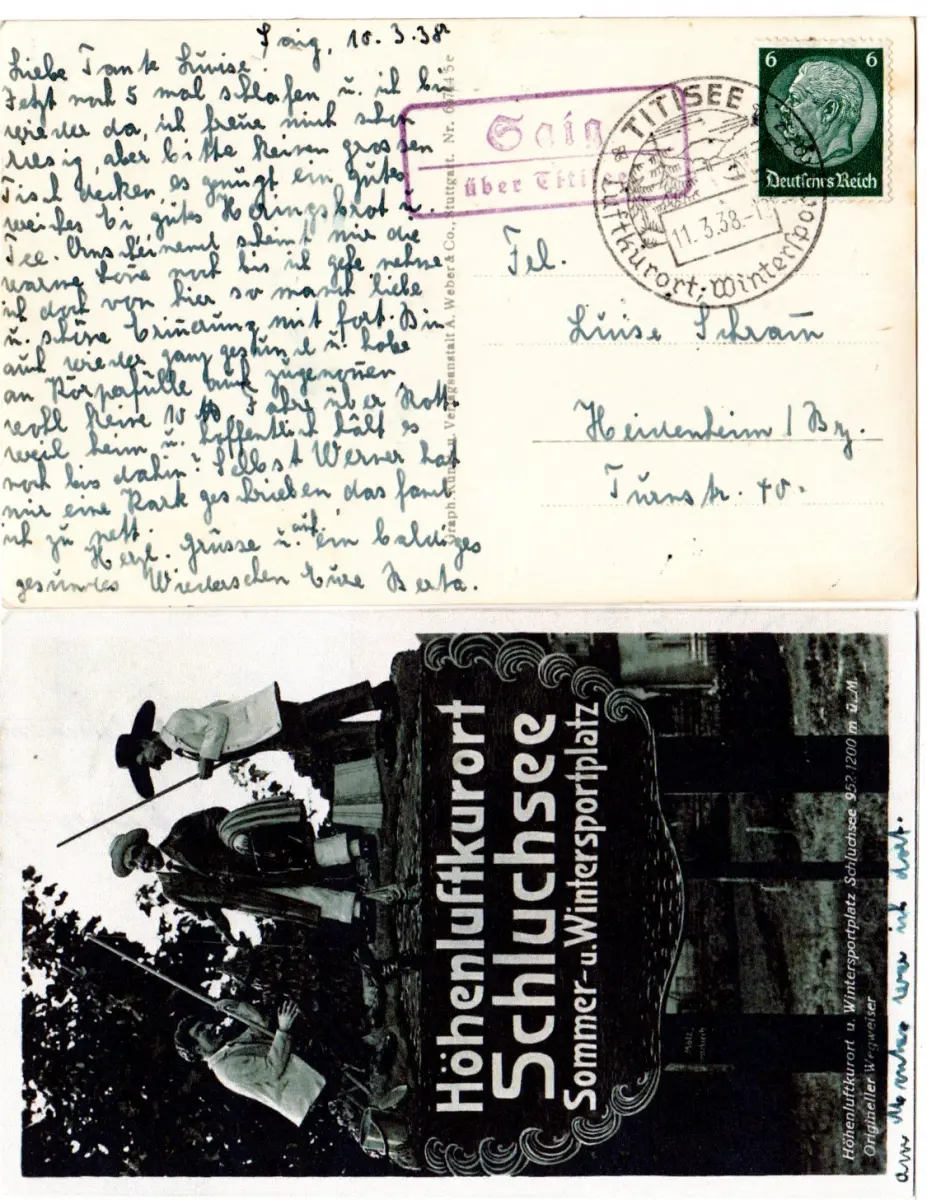 Saig, 10.3.38
Liebe Tante Luise!
Jetzt noch 5 mal schlafen u. ich bin
wieder da, ich freue mich schon
riesig, aber bitte keinen grossen
Tisch decken, es genügt ein gutes
weiches Ei, gutes Honigsbrot u.
Tee. Anscheinend scheint mir die
warme Sonne noch bis ich gehe nehme
ich doch von hier so manch liebe
u. schöne Erinerung mit fort. Bin
auch wieder ganz gesund u. habe
an Körperfülle auch zugenomen
wohl keine 10 ℔. Fahre über Rott-
weil heim u. hoffentlich hält es
noch bis dahin? Selbst Werner hat
mir eine Kark geschrieben das fand
ich zu nett.
Herzl. Grüsse u. auf ein baldiges
gesundes Wiedersehen Eure Berta.
Graph. Kunst u. Verlagsanstalt A. Weber & Co., Stuttgart. Nr.
Saig
über Titisee
TITISEE
11.3.38.-1
Luftkurort, Winterspor
6 6
Deutsches Reich
Frl.
Luise Schram
Heidenheim / Brz.
Turnstr. 40.
Höhenluftkurort
Schluchsee
Sommer- u. Wintersportplatz
Höhenluftkurort u. Wintersportplatz Schluchsee 952.1200 m ü. M.
Origineller Wegweiser
am Montag war ich dort.